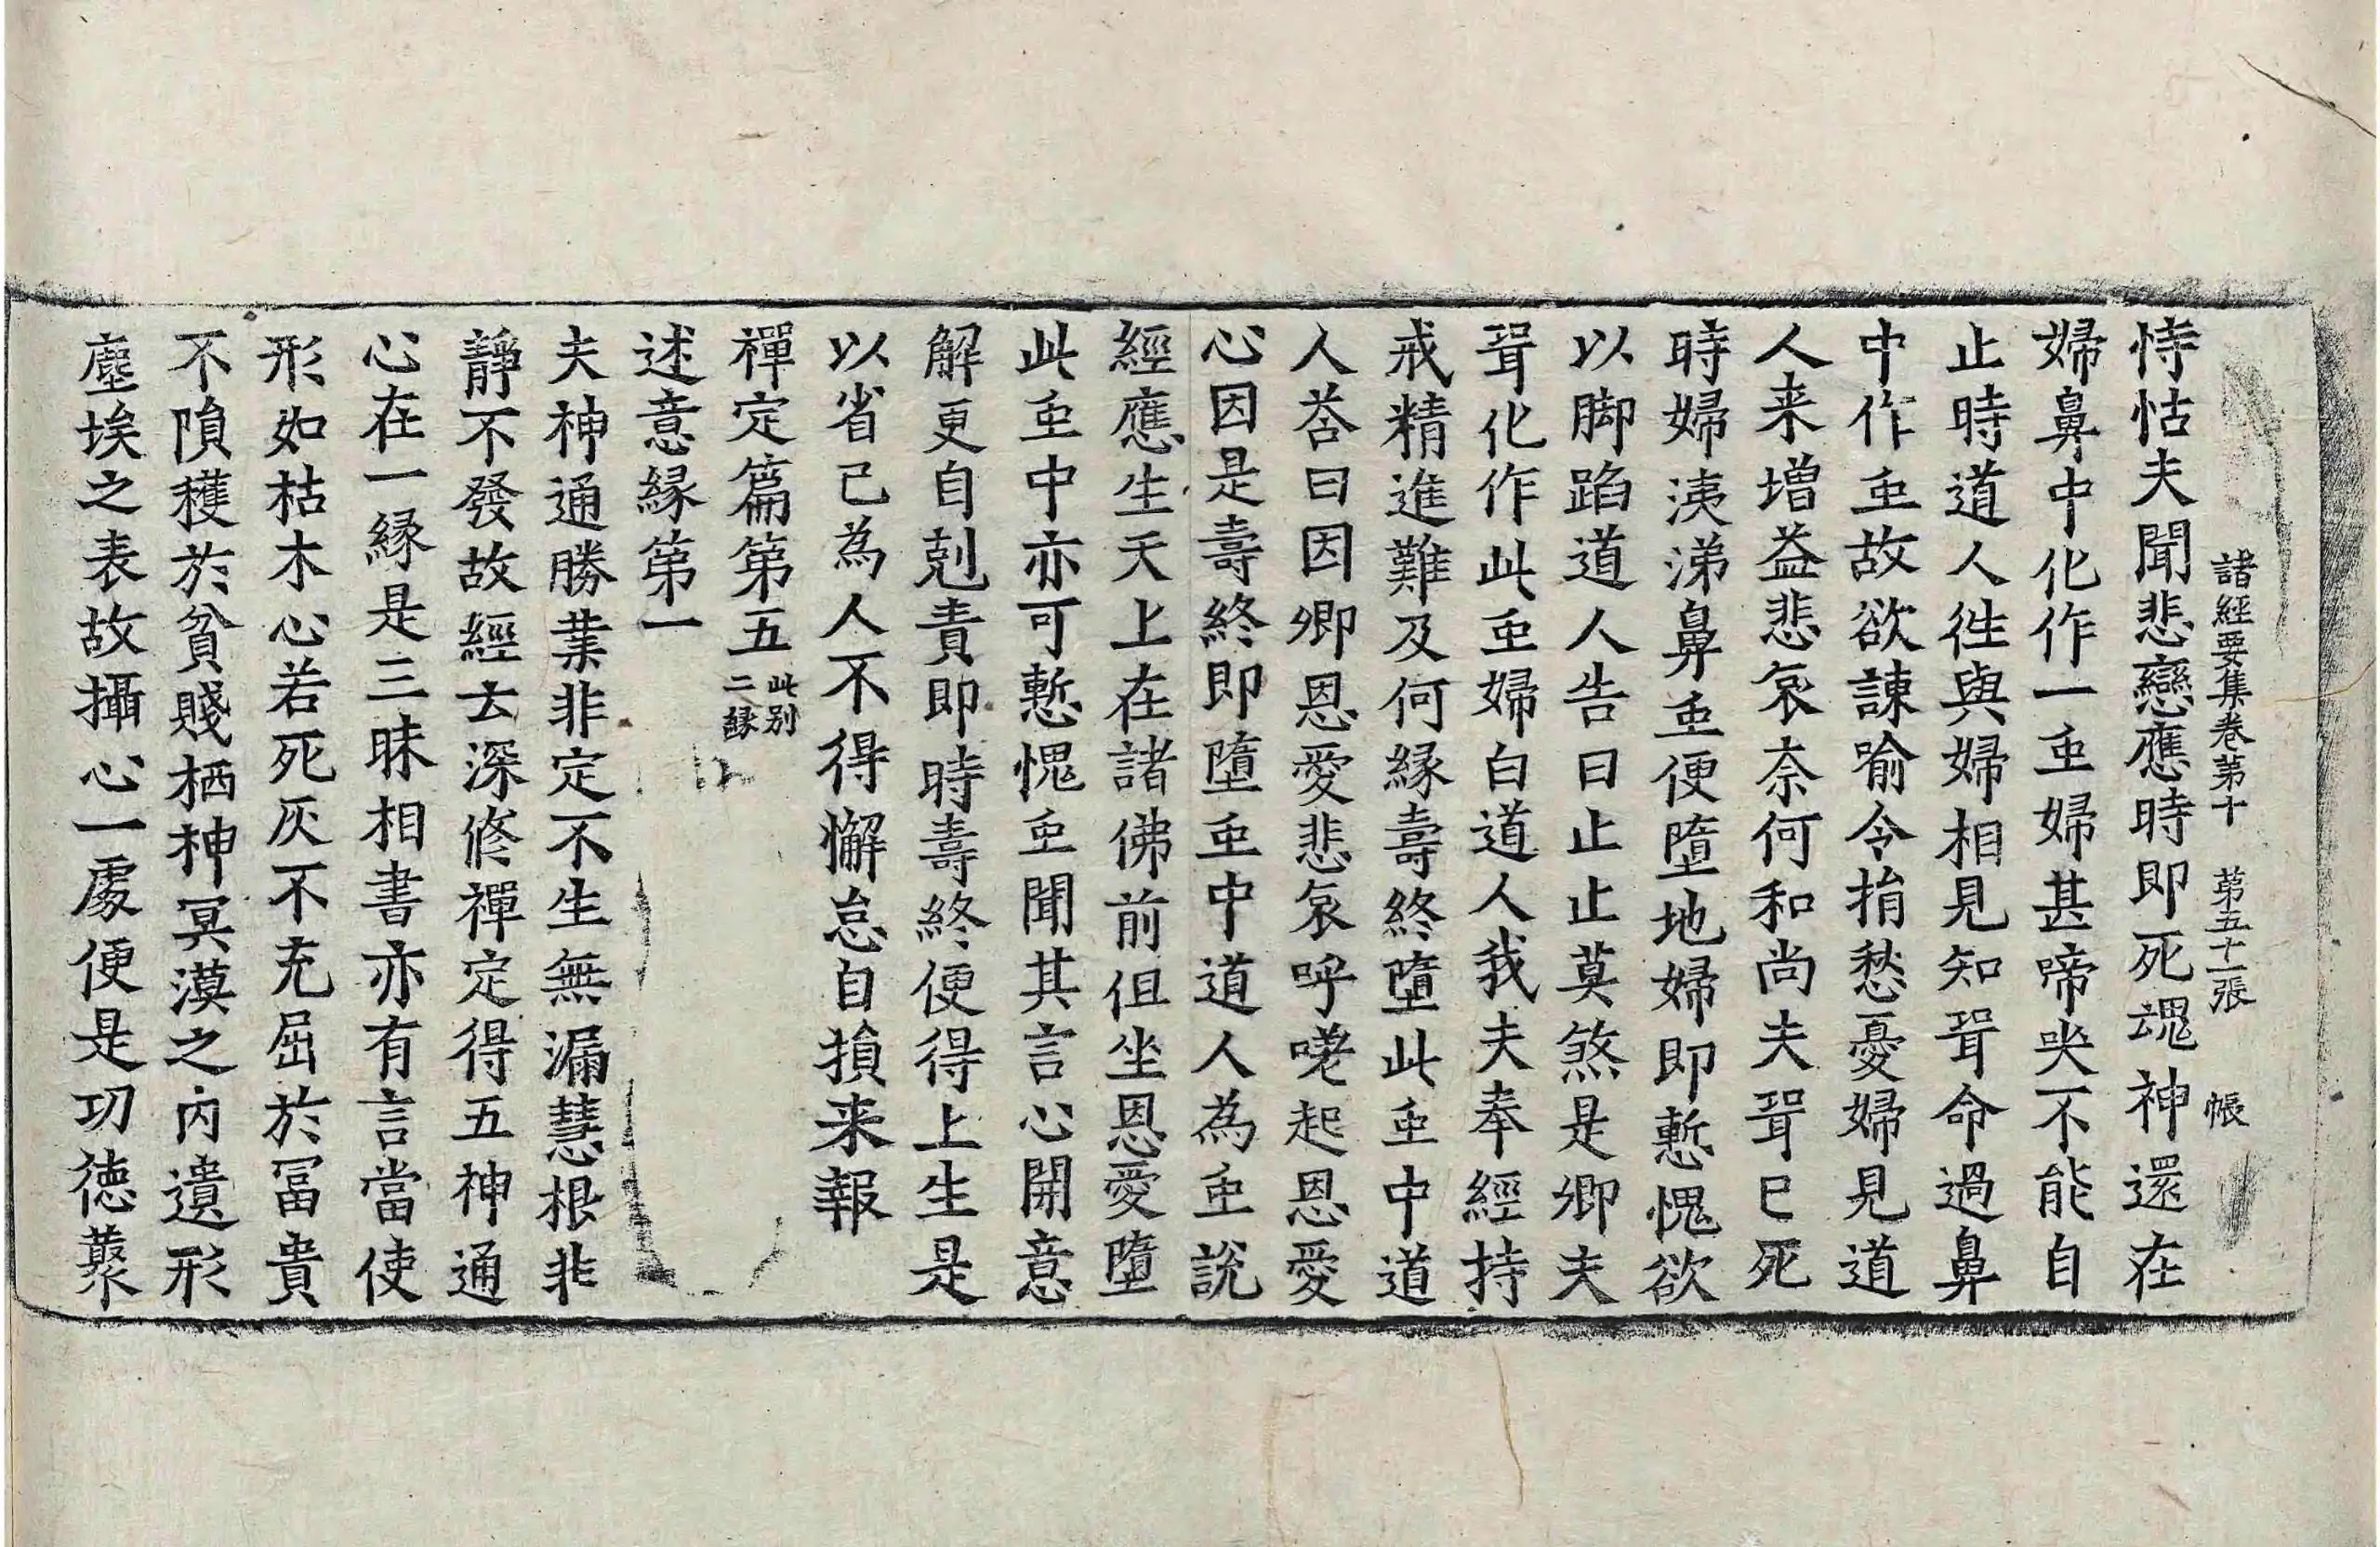 諸經要集卷第十　第五十一張　帳
恃怙夫聞悲戀應時即死魂神還在
婦鼻中化作一䖝婦甚啼哭不能自
止時道人徃與婦相見知聓命過鼻
中作䖝故欲諫喻令捐愁憂婦見道
人来增益悲哀柰何和尚夫聓已死
時婦洟涕鼻䖝便墮地婦即慙愧欲
以脚蹈道人告曰止止莫煞是卿夫
聓化作此䖝婦白道人我夫奉經持
戒精進難及何縁壽終墮此䖝中道
人荅曰因卿恩愛悲哀呼嗟起恩愛
心因是壽終即墮䖝中道人為䖝說
經應生天上在諸佛前但坐恩愛墮
此䖝中亦可慙愧䖝聞其言心開意
解更自剋責即時壽終便得上生是
以省己為人不得懈怠自損来報
禪定篇第五此別二縁
述意縁第一
夫神通勝業非定不生無漏慧根非
靜不發故經云深修禪定得五神通
心在一縁是三昧相書亦有言當使
形如枯木心若死灰不充屈於冨貴
不隕穫於貧賤栖神冥漠之内遺形
塵埃之表故攝心一處便是功徳藂